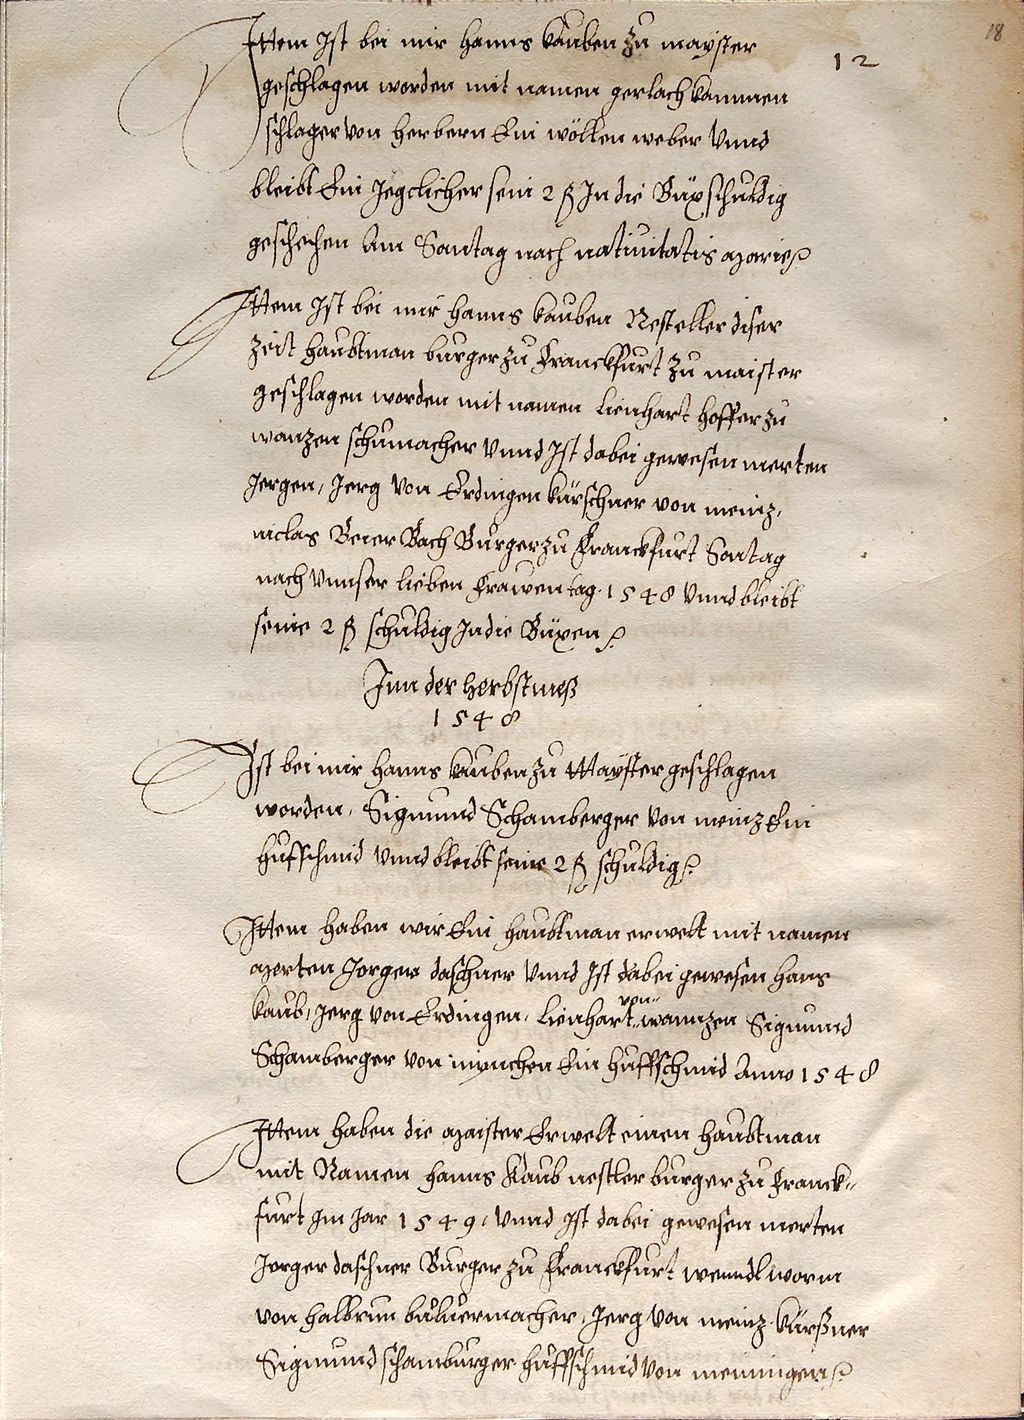 18
12
Ittem Ist bei mir Hanns Kauben zu mayster
geschlagen worden mit namen gerlach kannnen
schlager von Herbern Ein wöllen weber Vnnd
bleibt Ein Jegclicher sein 2 ß In die Büx schuldig
geschehen Am Sontag nach natiuitatis Marie
Ittem Ist bei mir Hanns Kauben Nesteller diser
zeit Haubtman burger zu Franckfurt zu maister
geschlagen worden mit namen Lienhart Hoffer zu
wanzen schumacher Vnnd Ist dabei gewesen merten
Jergen, Jerg Von Erdingen kürschner von meinz,
niclas Beier Bach Burger zu Franckfurt Sontag
nach Vnnser lieben Frawen tag. 1548 Vnnd bleibt
seine 2 ß schuldig In die Büxen
Inn der Herbstmeß
1548
Ist bei mir Hanns Kauben zu Mayster geschlagen
worden, Sigmund Schamberger Von meinz Ein
Hufschmid Vnnd bleibt seine 2 ß schuldig
Ittem haben wir Ein Haubtman erwelt mit namen
Merten Jorgen daschner Vnnd Ist dabei gewesen Hans
Kaub, Jerg von Erdingen, Lienhart von wannzen Sigmund
Schamberger von münchen Ein Huffschmid Anno 1548
Ittem haben die Maister Erwelt einen Haubtman
mit Namen Hanns Kaub nestler burger zu Franck-
furt Im Jar 1549, Vnnd Ist dabei gewesen merten
Jorger daschner Burger zu Franckfurt wenndl worm
von Halbrun buluermacher, Jerg Von meinz kürßner
Sigmund schamburger Huffschmid von menningen